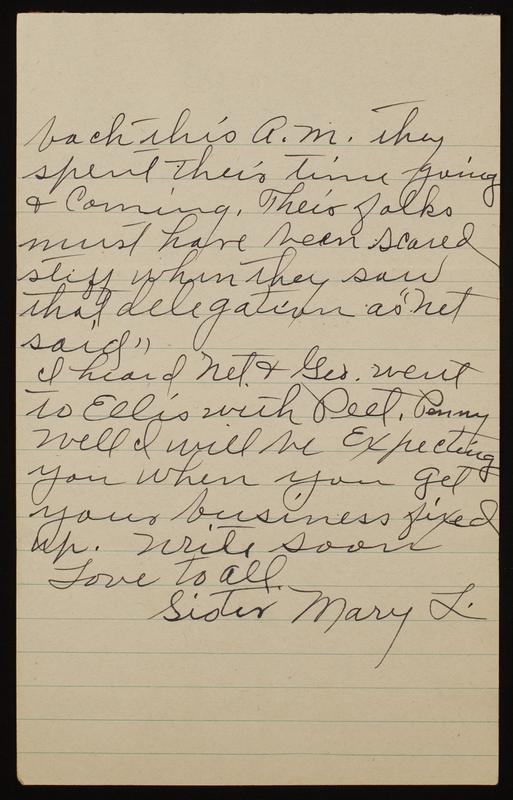 back this A.M. they
spent their time going
& Coming. Their folks
must have been scared
stiff when they saw
that delegation as "Net
said"
I heard Net. & Geo. went
to Ellis with Peet. Penny
Well I will be Expecting
you when you get
your business fixed
up. Write soon
Love to all.
Sister Mary L.